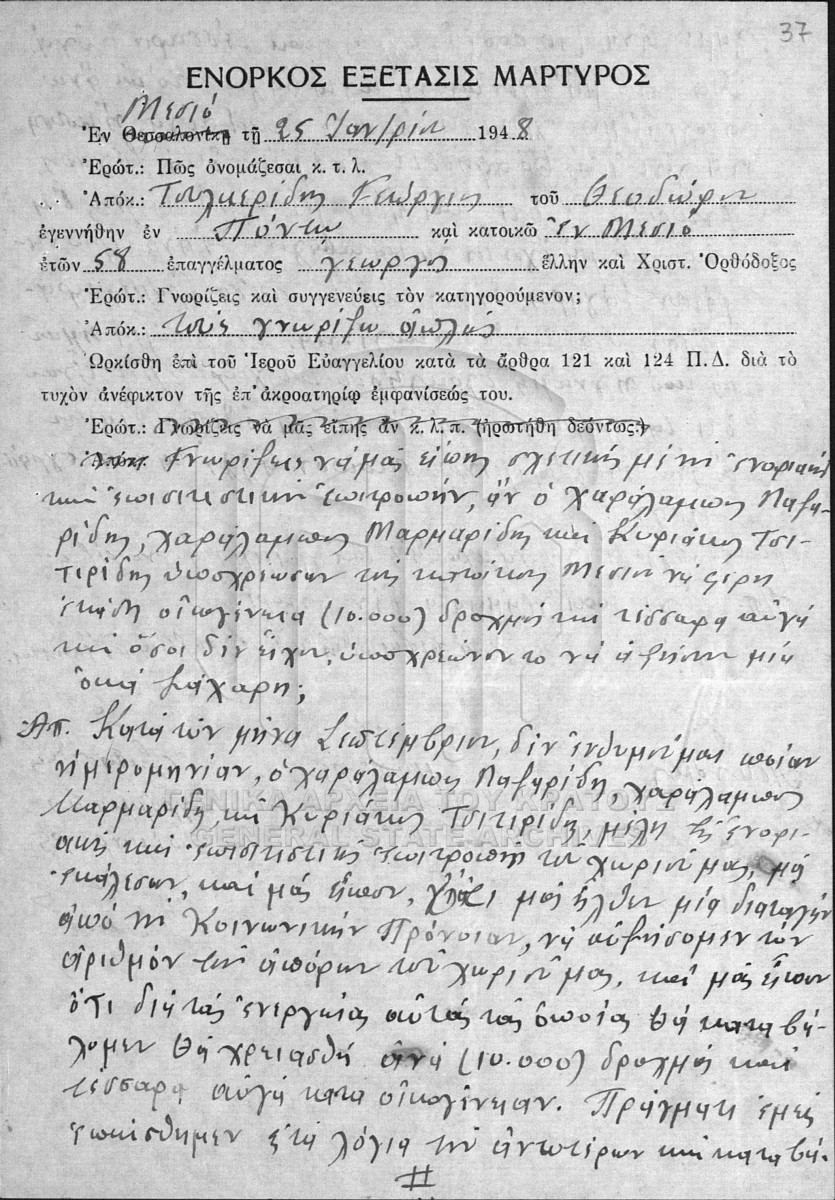 37
ΕΝΟΡΚΟΣ ΕΞΕΤΑΣΙΣ ΜΑΡΤΥΡΟΣ
Μεσιό
Ἐν Θεσσαλονίκῃ τῇ 25 Ἰαν/ρίου 1948
Ἐρώτ.: Πῶς ὀνομάζεσαι κ. τ. λ.
Ἀπόκ.: Τουλκερίδης Γεώργιος τοῦ Θεοδώρου
ἐγεννήθην ἐν Πόντω καὶ κατοικῶ Ἐν Μεσιό
ἐτῶν 58 ἐπαγγέλματος γεωργός ἕλλην καὶ Χριστ. Ὀρθόδοξος
Ἐρώτ.: Γνωρίζεις καὶ συγγενεύεις τὸν κατηγορούμενον;
Ἀπόκ.: τούς γνωρίζω ἁπλῶς
Ὡρκίσθη ἐπὶ τοῦ Ἱεροῦ Εὐαγγελίου κατὰ τὰ ἄρθρα 121 καὶ 124 Π.Δ. διὰ τὸ
τυχὸν ἀνέφικτον τῆς ἐπ᾽ ἀκροατηρίῳ ἐμφανίσεώς του.
Ἐρώτ.: Γνωρίζεις νὰ μᾶς εἴπῃς ἂν κ. λ. π. (ἠρωτήθη δεόντως.)
Ἀπόκ. Γνωρίζεις νά μᾶς εἴπης σχετικῶς μέ τήν ἐνοριακήν
καί ἐπισιτιστικήν ἐπιτροπήν, ἄν ὁ χαράλαμπος Λαζα-
ρίδης, χαράλαμπος Μαρμαρίδης καί Κυριάκος Τσι-
τιρίδης ὑποσχρέωσαν τούς κατοίκους Μεσιοῦ νά φέρη
ἑκάστη οἰκογένεια (10.000) δραχμάς καί τέσσαρα αὐγά
καί ὅσοι δέν εἶχον, ὑποσχρεώνοντο νά μία
ὀκά ζάχαρη;
Απ. Κατά τόν μήνα Σεπτέμβριον, δέν ἐνθυμοῦμαι ποίαν
ἡμερομηνίαν, ὁ χαράλαμπος Λαζαρίδης, χαράλαμπος
Μαρμαρίδης καί Κυριάκος Τσιτιρίδης, μέλη τῆς ἐνορι-
ακῆς καί ἐπισιτιστικῆς ἐπιτροπῆς τοῦ χωριοῦ μας, μᾶς
ἐκάλεσαν, καί μᾶς εἶπον, μᾶς ἦλθεν μία διαταγήν
ἀπό τή Κοινωνικήν Πρόνοιαν, νά αὐξήσομεν τόν
ἀριθμόν τῶν ἀπόρων τοῦ χωριοῦ μας, καί μᾶς εἶπον
ὅτι διά τάς ἐνεργείας αὐτάς τάς ὁποίας θά καταβά-
λομεν θά χρειασθῆ ἀνά (10.000) δραχμάς καί
τέσσαρα αὐγά κατά οἰκογένειαν. Πράγματι ἐμεῖς
ἐπείσθημεν στά λόγια τῶν ἀνωτέρων καί καταβά-
ΓΕΝΙΚΑ ΑΡΧΕΙΑ ΤΟΥ ΚΡΑΤΟΥΣ
GENERAL STATE ARCHIVES